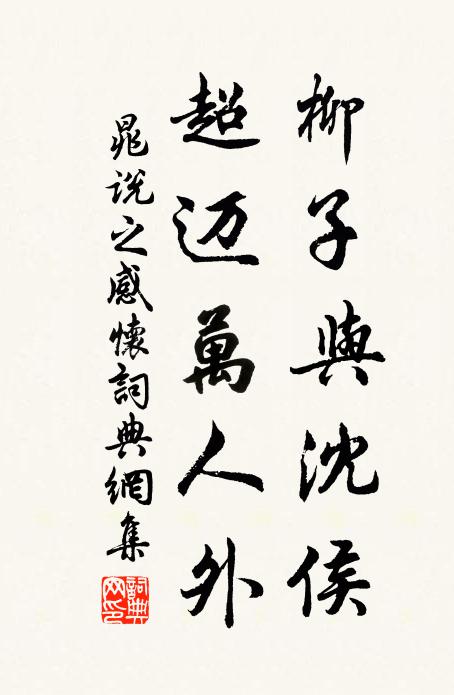 柳子與沈侯
超迈萬人外
晁說之感懷詞典網集
詞典網印